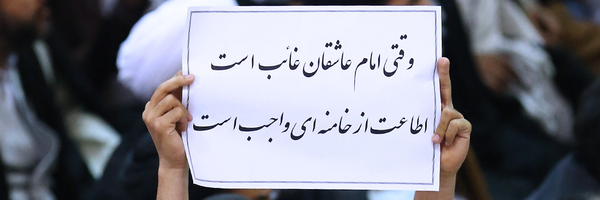 وقتی امام عاشقان غائب است
اطاعت از خامنه ای واجب است